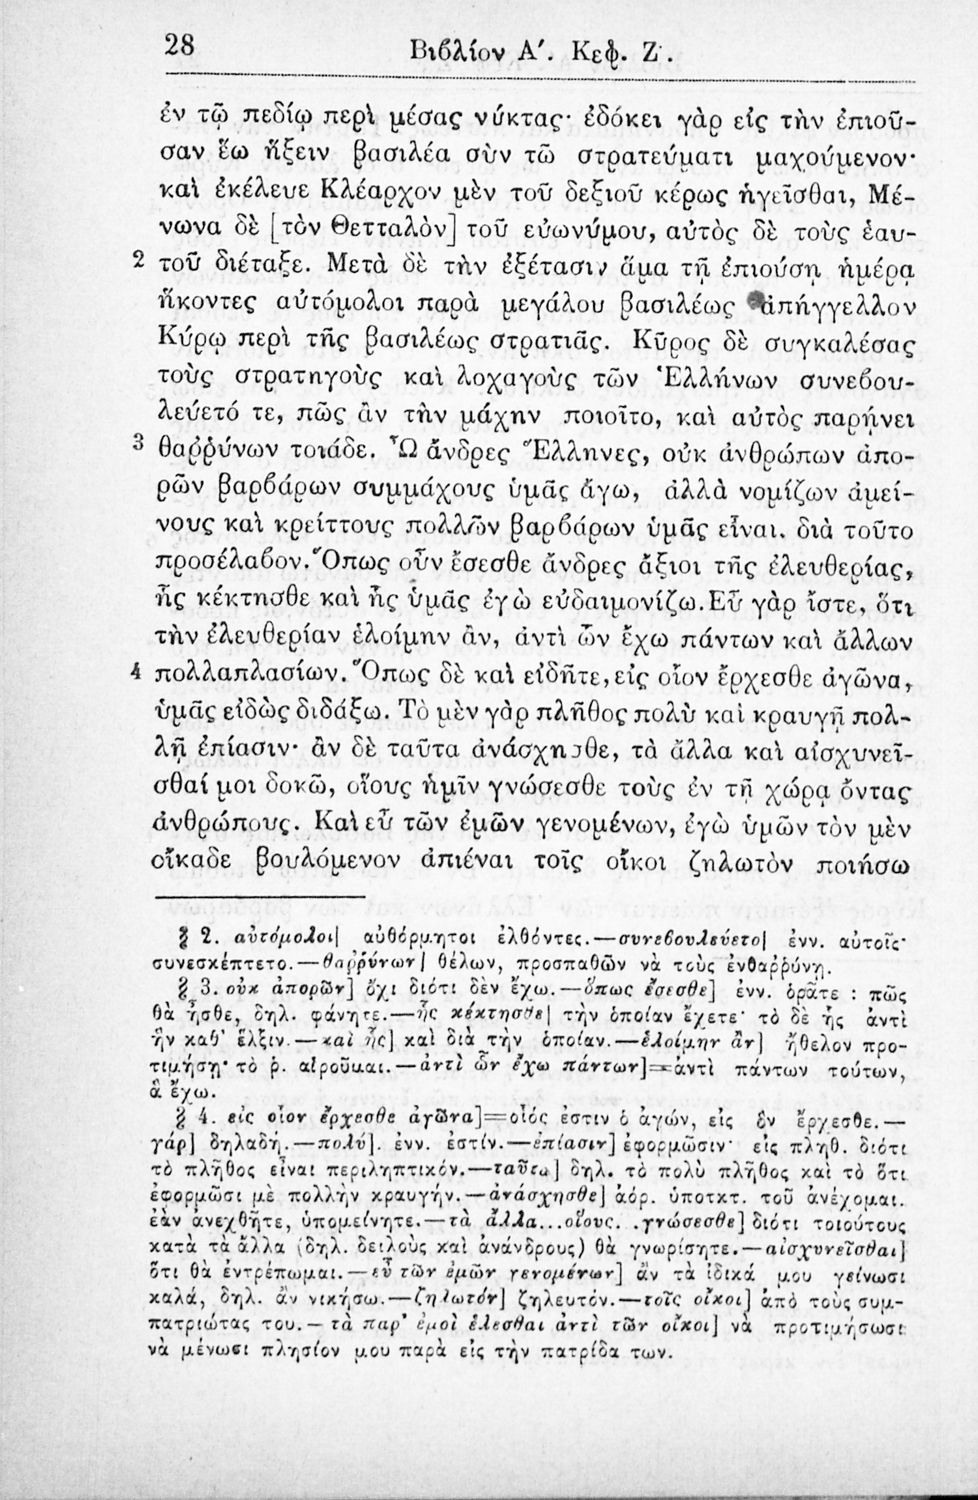 28 Βιβλίον Α΄. Κεφ. Ζ΄.
ἐν τῷ πεδίῳ περὶ μέσας νύκτας· ἐδόκει γὰρ εἰς τὴν ἐπιοῦ-
σαν ἕω ἥξειν βασιλέα σὺν τῶ στρατεύματι μαχούμενον·
καὶ ἐκέλευε Κλέαρχον μὲν τοῦ δεξιοῦ κέρως ἡγεῖσθαι, Μέ-
νωνα δὲ [τὸν Θετταλὸν] τοῦ εὐωνύμου, αὐτὸς δὲ τοὺς ἑαυ-
2 τοῦ διέταξε. Μετὰ δὲ τὴν ἐξέτασιν ἅμα τῇ ἐπιούσῃ ἡμέρᾳ
ἥκοντες αὐτόμολοι παρὰ μεγάλου βασιλέως ἀπήγγελλον
Κύρῳ περὶ τῆς βασιλέως στρατιᾶς. Κῦρος δὲ συγκαλέσας
τοὺς στρατηγοὺς καὶ λοχαγοὺς τῶν Ἑλλήνων συνεβου-
λεύετό τε, πῶς ἂν τὴν μάχην ποιοῖτο, καὶ αὐτὸς παρῄνει
3 θαῤῥύνων τοιάδε. Ὦ ἄνδρες Ἕλληνες, οὐκ ἀνθρώπων ἀπο-
ρῶν βαρβάρων συμμάχους ὑμᾶς ἄγω, ἀλλὰ νομίζων ἀμεί-
νους καὶ κρείττους πολλῶν βαρβάρων ὑμᾶς εἶναι, διὰ τοῦτο
προσέλαβον. Ὅπως οὖν ἔσεσθε ἄνδρες ἄξιοι τῆς ἐλευθερίας,
ἧς κέκτησθε καὶ ἧς ὑμᾶς ἐγὼ εὐδαιμονίζω. Εὖ γὰρ ἴστε, ὅτι
τὴν ἐλευθερίαν ἑλοίμην ἂν, ἀντὶ ὧν ἔχω πάντων καὶ ἄλλων
4 πολλαπλασίων. Ὅπως δὲ καὶ εἰδῆτε, εἰς οἷον ἔρχεσθε ἀγῶνα,
ὑμᾶς εἰδὼς διδάξω. Τὸ μὲν γὰρ πλῆθος πολὺ καὶ κραυγῇ πολ-
λῇ ἐπίασιν· ἂν δὲ ταῦτα ἀνάσχησθε, τὰ ἄλλα καὶ αἰσχυνεῖ-
σθαί μοι δοκῶ, οἵους ἡμῖν γνώσεσθε τοὺς ἐν τῇ χώρᾳ ὄντας
ἀνθρώπους. Καὶ εὖ τῶν ἐμῶν γενομένων, ἐγὼ ὑμῶν τὸν μὲν
οἴκαδε βουλόμενον ἀπιέναι τοῖς οἴκοι ζηλωτὸν ποιήσω
§ 2. αὐτόμολοι] αὐθόρμητοι ἐλθόντες.—συνεβουλεύετο] ἐνν. αὐτοῖς·
συνεσκέπτετο.—θαῤῥύνων] θέλων, προσπαθῶν νὰ τοὺς ἐνθαῤῥύνῃ.
§ 3. οὐκ ἀπορῶν] ὄχι διότι δὲν ἔχω.—ὅπως ἔσεσθε] ἐνν. ὁρᾶτε : πῶς
θὰ ἦσθε, δηλ. φάνητε.—ἧς κέκτησθε] τὴν ὁποίαν ἔχετε· τὸ δὲ ἧς ἀντὶ
ἣν καθ' ἕλξιν.—καὶ ἧς] καὶ διὰ τὴν ὁποίαν.—ἑλοίμην ἂν] ἤθελον προ-
τιμήσῃ· τὸ ῥ. αἱροῦμαι.—ἀντὶ ὧν ἔχω πάντων]=ἀντὶ πάντων τούτων,
ἃ ἔχω.
§ 4. εἰς οἷον ἔρχεσθε ἀγῶνα]=οἷός ἐστιν ὁ ἀγών, εἰς ὃν ἔρχεσθε.—
γάρ] δηλαδή.—πολύ]. ἐνν. ἐστίν.—ἐπίασιν] ἐφορμῶσιν· εἰς πληθ. διότι
τὸ πλῆθος εἶναι περιληπτικόν.—ταῦτα] δηλ. τὸ πολὺ πλῆθος καὶ τὸ ὅτι
ἐφορμῶσι μὲ πολλὴν κραυγήν.—ἀνάσχησθε] ἀόρ. ὑποτκτ. τοῦ ἀνέχομαι.
ἐὰν ἀνεχθῆτε, ὑπομείνητε.—τὰ ἄλλα...οἵους...γνώσεσθε] διότι τοιούτους
κατὰ τὰ ἄλλα (δηλ. δειλοὺς καὶ ἀνάνδρους) θὰ γνωρίσητε.—αἰσχυνεῖσθαι]
ὅτι θὰ ἐντρέπωμαι.—εὖ τῶν ἐμῶν γενομένων] ἂν τὰ ἰδικά μου γείνωσι
καλά, δηλ. ἂν νικήσω.—ζηλωτόν] ζηλευτόν.—τοῖς οἴκοι] ἀπὸ τοὺς συμ-
πατριώτας του.—τὰ παρ' ἐμοὶ ἑλέσθαι ἀντὶ τῶν οἴκοι] νὰ προτιμήσωσι
νὰ μένωσι πλησίον μου παρὰ εἰς τὴν πατρίδα των.